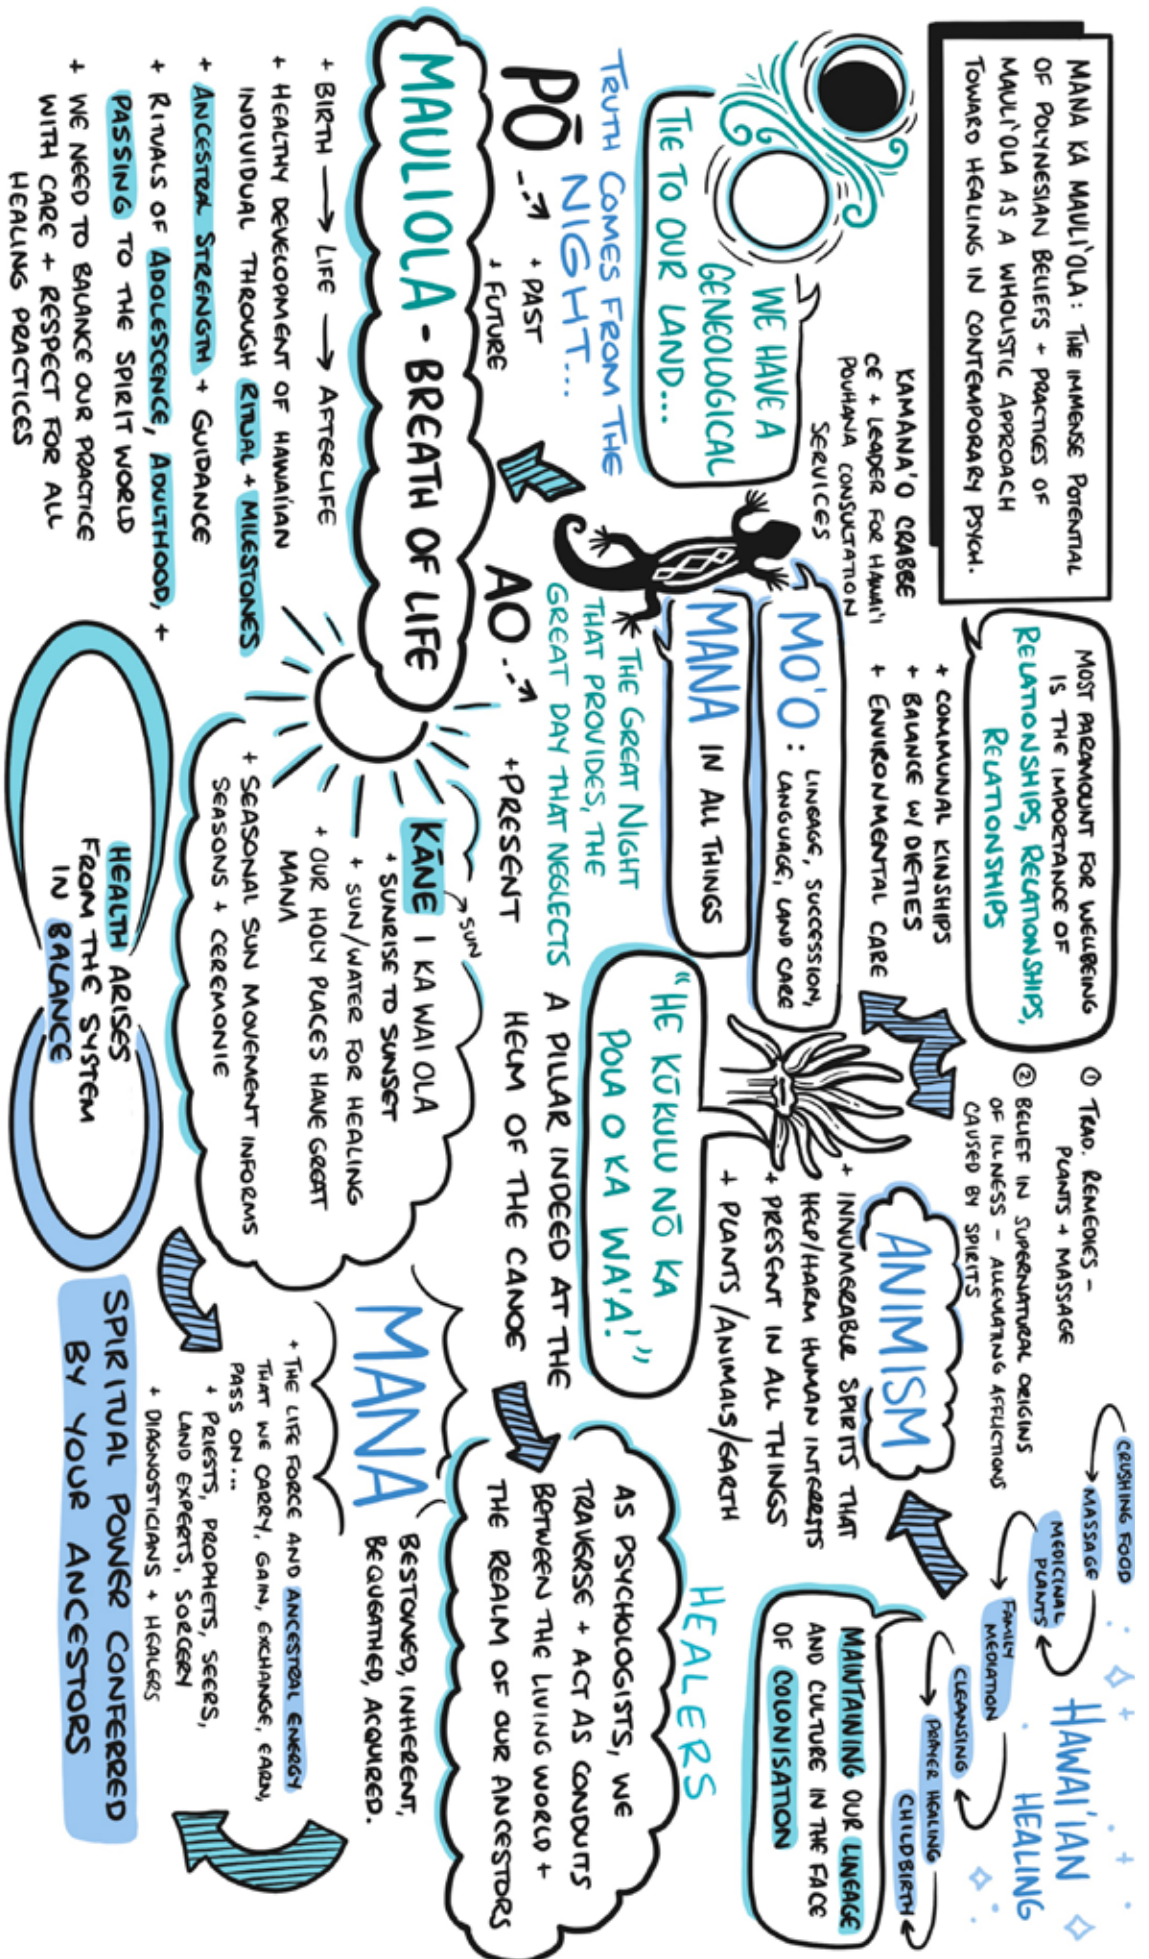 MANA KA MAULI'OLA: THE IMMENSE POTENTIAL
OF POLYNESIAN BELIEFS + PRACTICES OF
MAULI'OLA AS A WHOLISTIC APPROACH
TOWARD HEALING IN CONTEMPORARY PSYCH.
KAMANA'O CRABBE
CE + LEADER FOR HAWAI'I
POUHANA CONSULTATION
SERVICES
WE HAVE A
GENEOLOGICAL
TIE TO OUR LAND...
TRUTH COMES FROM THE
NIGHT...
PŌ
+ PAST
+ FUTURE
MAULIOLA - BREATH OF LIFE
+ BIRTH → LIFE → AFTERLIFE
+ HEALTHY DEVELOPMENT OF HAWAIIAN
INDIVIDUAL THROUGH RITUAL + MILESTONES
+ ANCESTRAL STRENGTH + GUIDANCE
+ RITUALS OF ADOLESCENCE, ADULTHOOD, +
PASSING TO THE SPIRIT WORLD
+ WE NEED TO BALANCE OUR PRACTICE
WITH CARE + RESPECT FOR ALL
HEALING PRACTICES
MOST PARAMOUNT FOR WELLBEING
IS THE IMPORTANCE OF
RELATIONSHIPS, RELATIONSHIPS,
RELATIONSHIPS
+ COMMUNAL KINSHIPS
+ BALANCE W/ DIETIES
+ ENVIRONMENTAL CARE
MO'O : LINEAGE, SUCCESSION,
LANGUAGE, LAND CARE
MANA IN ALL THINGS
THE GREAT NIGHT
THAT PROVIDES, THE
GREAT DAY THAT NEGLECTS
AO
+ PRESENT
SUN
KĀNE I KA WAI OLA
+ SUNRISE TO SUNSET
+ SUN/WATER FOR HEALING
+ OUR HOLY PLACES HAVE GREAT
MANA
+ SEASONAL SUN MOVEMENT INFORMS
SEASONS + CEREMONIE
HEALTH ARISES
FROM THE SYSTEM
IN BALANCE
① TRAD. REMEDIES -
PLANTS + MASSAGE
② BELIEF IN SUPERNATURAL ORIGINS
OF ILLNESS - ALLEVIATING AFFLICTIONS
CAUSED BY SPIRITS
ANIMISM
+ INNUMERABLE SPIRITS THAT
HELP/HARM HUMAN INTERESTS
+ PRESENT IN ALL THINGS
+ PLANTS/ANIMALS/EARTH
"HE KŪKULU NŌ KA
POLA O KA WA'A!"
A PILLAR INDEED AT THE
HELM OF THE CANOE
HAWAI'IAN
HEALING
CRUSHING FOOD
MASSAGE
MEDICINAL
PLANTS
FAMILY
MEDIATION
CLEANSING
PRAYER HEALING
CHILDBIRTH
MAINTAINING OUR LINEAGE
AND CULTURE IN THE FACE
OF COLONISATION
HEALERS
AS PSYCHOLOGISTS, WE
TRAVERSE + ACT AS CONDUITS
BETWEEN THE LIVING WORLD +
THE REALM OF OUR ANCESTORS
MANA
BESTONED, INHERENT,
BEQUEATHED, ACQUIRED.
+ THE LIFE FORCE AND ANCESTRAL ENERGY
THAT WE CARRY, GAIN, EXCHANGE, EARN,
PASS ON...
+ PRIESTS, PROPHETS, SEERS,
LAND EXPERTS, SORCERY
+ DIAGNOSTICIANS + HEALERS
SPIRITUAL POWER CONFERRED
BY YOUR ANCESTORS